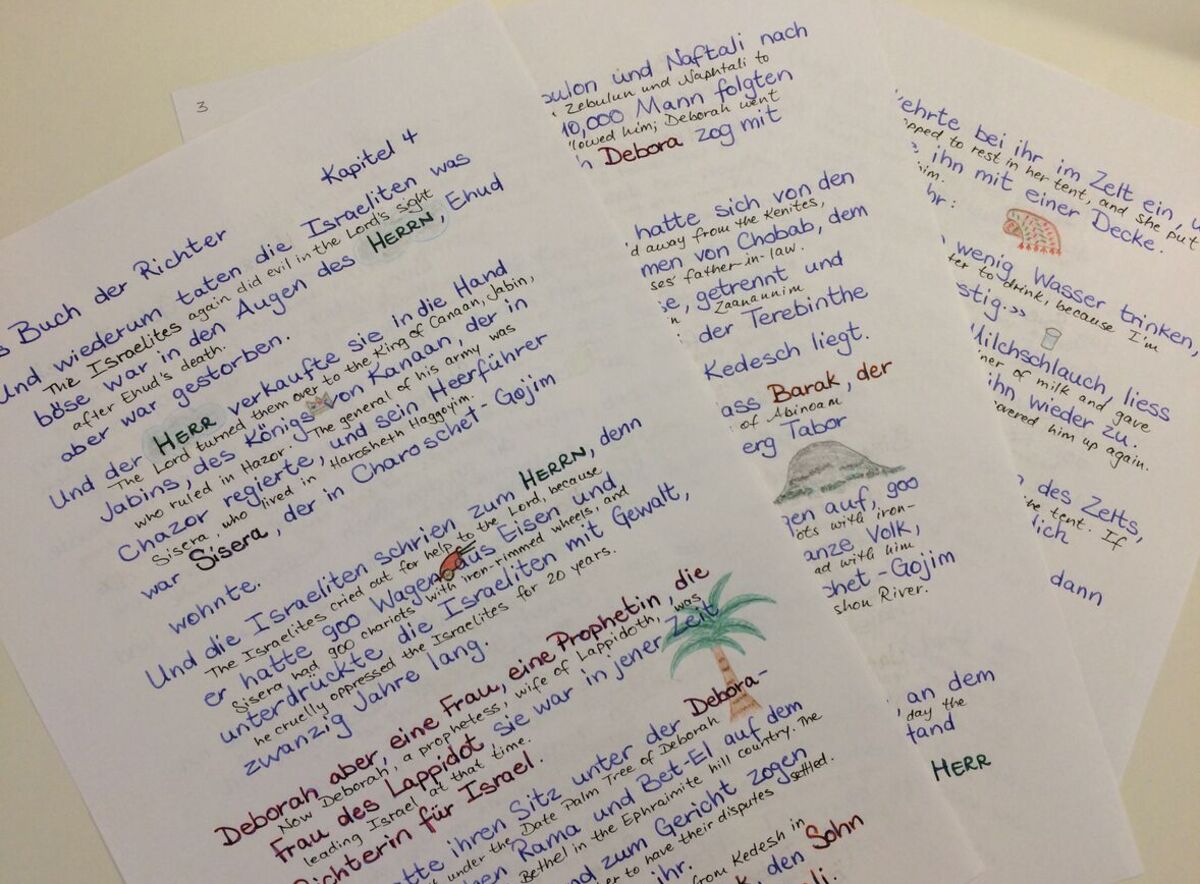 3
Kapitel 4
s Buch der Richter
Und wiederum taten die Israeliten was
The Israelites again did evil in the Lord's sight
böse war in den Augen des HERRN, Ehud
after Ehud's death.
aber war gestorben.
Und der HERR verkaufte sie in die Hand
The Lord turned them over to the King of Canaan, Jabin,
Jabins, des Königs von Kanaan, der in
who ruled in Hazor. The general of his army was
Chazor regierte, und sein Heerführer
Sisera, who lived in Harosheth Haggoyim.
war Sisera, der in Charoschet-Gojim
wohnte.
Und die Israeliten schrien zum HERRN, denn
The Israelites cried out for help to the Lord, because
er hatte 900 Wagen aus Eisen und
Sisera had 900 chariots with iron-rimmed wheels, and
unterdrückte die Israeliten mit Gewalt,
he cruelly oppressed the Israelites for 20 years.
zwanzig Jahre lang.
Deborah aber, eine Frau, eine Prophetin, die
Now Deborah, a prophetess, wife of Lappidoth, was
Frau des Lappidot sie war in jener Zeit
leading Israel at that time.
Richterin für Israel.
tte ihren Sitz unter der Debora-
t under the Date Palm Tree of Deborah
en Rama und Bet-El auf dem
Bethel in the Ephraimite hill country. The
nd zum Gericht zogen
er to have their disputes settled.
ihr.
from Kedesh in
k, den Sohn
li.
bulon und Naftali nach
Zebulun und Naphtali to
10,000 Mann folgten
llowed him; Deborah went
h Debora zog mit
hatte sich von den
d away from the Kenites,
men von Chobab, dem
ses' father-in-law.
se, getrennt und
n Zaanannim
der Terebinthe
Kedesch liegt.
ass Barak, der
of Abinoam
erg Tabor
gen auf, 900
ots with iron-
anze Volk,
ad with him
chet-Gojim
shon River.
, an dem
day the
tand
HERR
kehrte bei ihr im Zelt ein, u
opped to rest in her tent, and she put
e ihn mit einer Decke.
him.
hr:
wenig Wasser trinken,
ter to drink, because I'm
stig.»
Milchschlauch, liess
iner of milk and gave
ihn wieder zu.
overed him up again.
des Zelts,
he tent. If
lich
dann